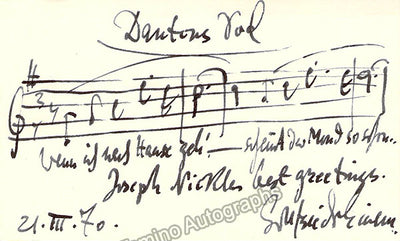 Dantons Tod
3/4
wenn ich nach Hause geh' — scheint der Mond so schön..
Joseph Nickles best greetings.
21. III. 70.
Tamino Autographs